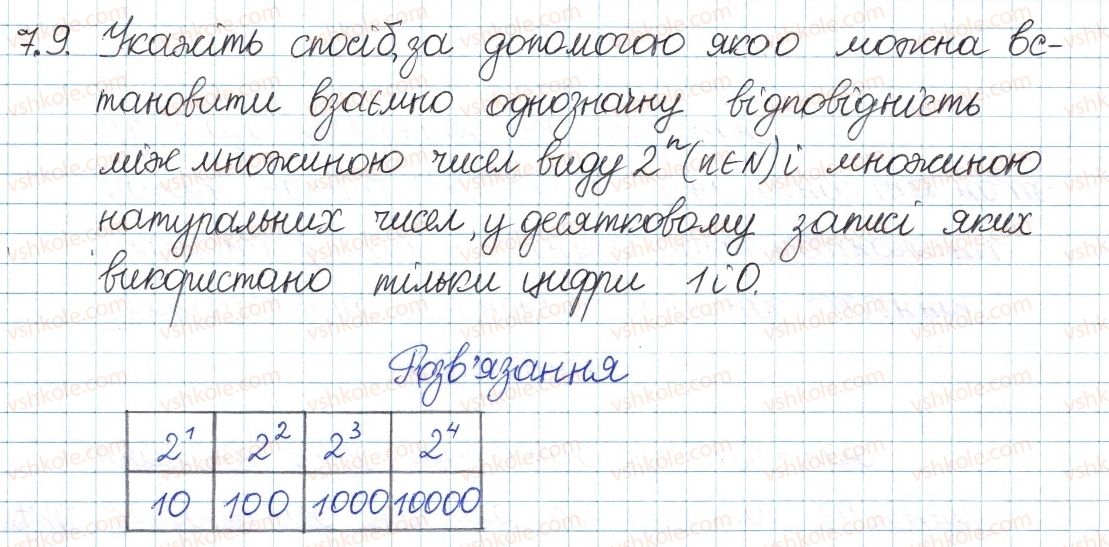 7.9. Укажіть спосіб, за допомогою якоо можна вс-
тановити взаємно однозначну відповідність
між множиною чисел виду 2ⁿ (n∈N) і множиною
натуральних чисел, у десятковому записі яких
використано тільки цифри 1 і 0.
Розв'язання
2¹ 2² 2³ 2⁴
10 100 1000 10000